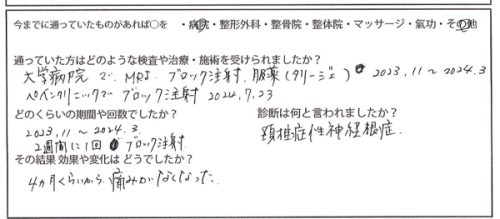 今までに通っていたものがあれば○を ・病院・整形外科・整骨院・整体院・マッサージ・氣功・その他
通っていた方はどのような検査や治療・施術を受けられましたか？
大学病院で、MRI、ブロック注射、服薬(タリージェ) 2023.11〜2024.3
ペインクリニックで ブロック注射 2024.7.23
どのくらいの期間や回数でしたか？ 診断は何と言われましたか？
2023.11〜2024.3 頚椎症性神経根症.
2週間に1回 ブロック注射
その結果 効果や変化は どうでしたか？
4ヵ月くらいから、痛みがなくなった.